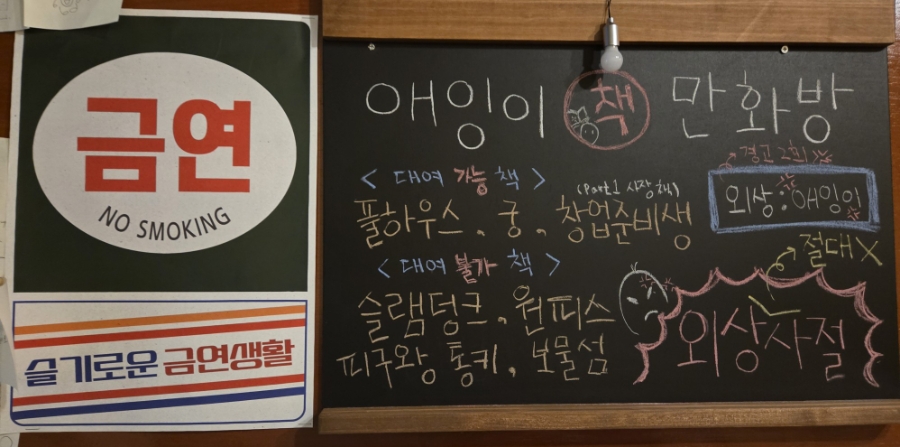 금연
NO SMOKING
슬기로운 금연생활
애잉이 책 만화방
< 대여 가능 책 >
(Part 1 시장 책)
풀하우스, 궁, 창업준비생
< 대여 불가 책 >
슬램덩크, 원피스
피구왕 통키, 보물섬
경고 2회
외상 : 애잉이
절대 X
외상사절